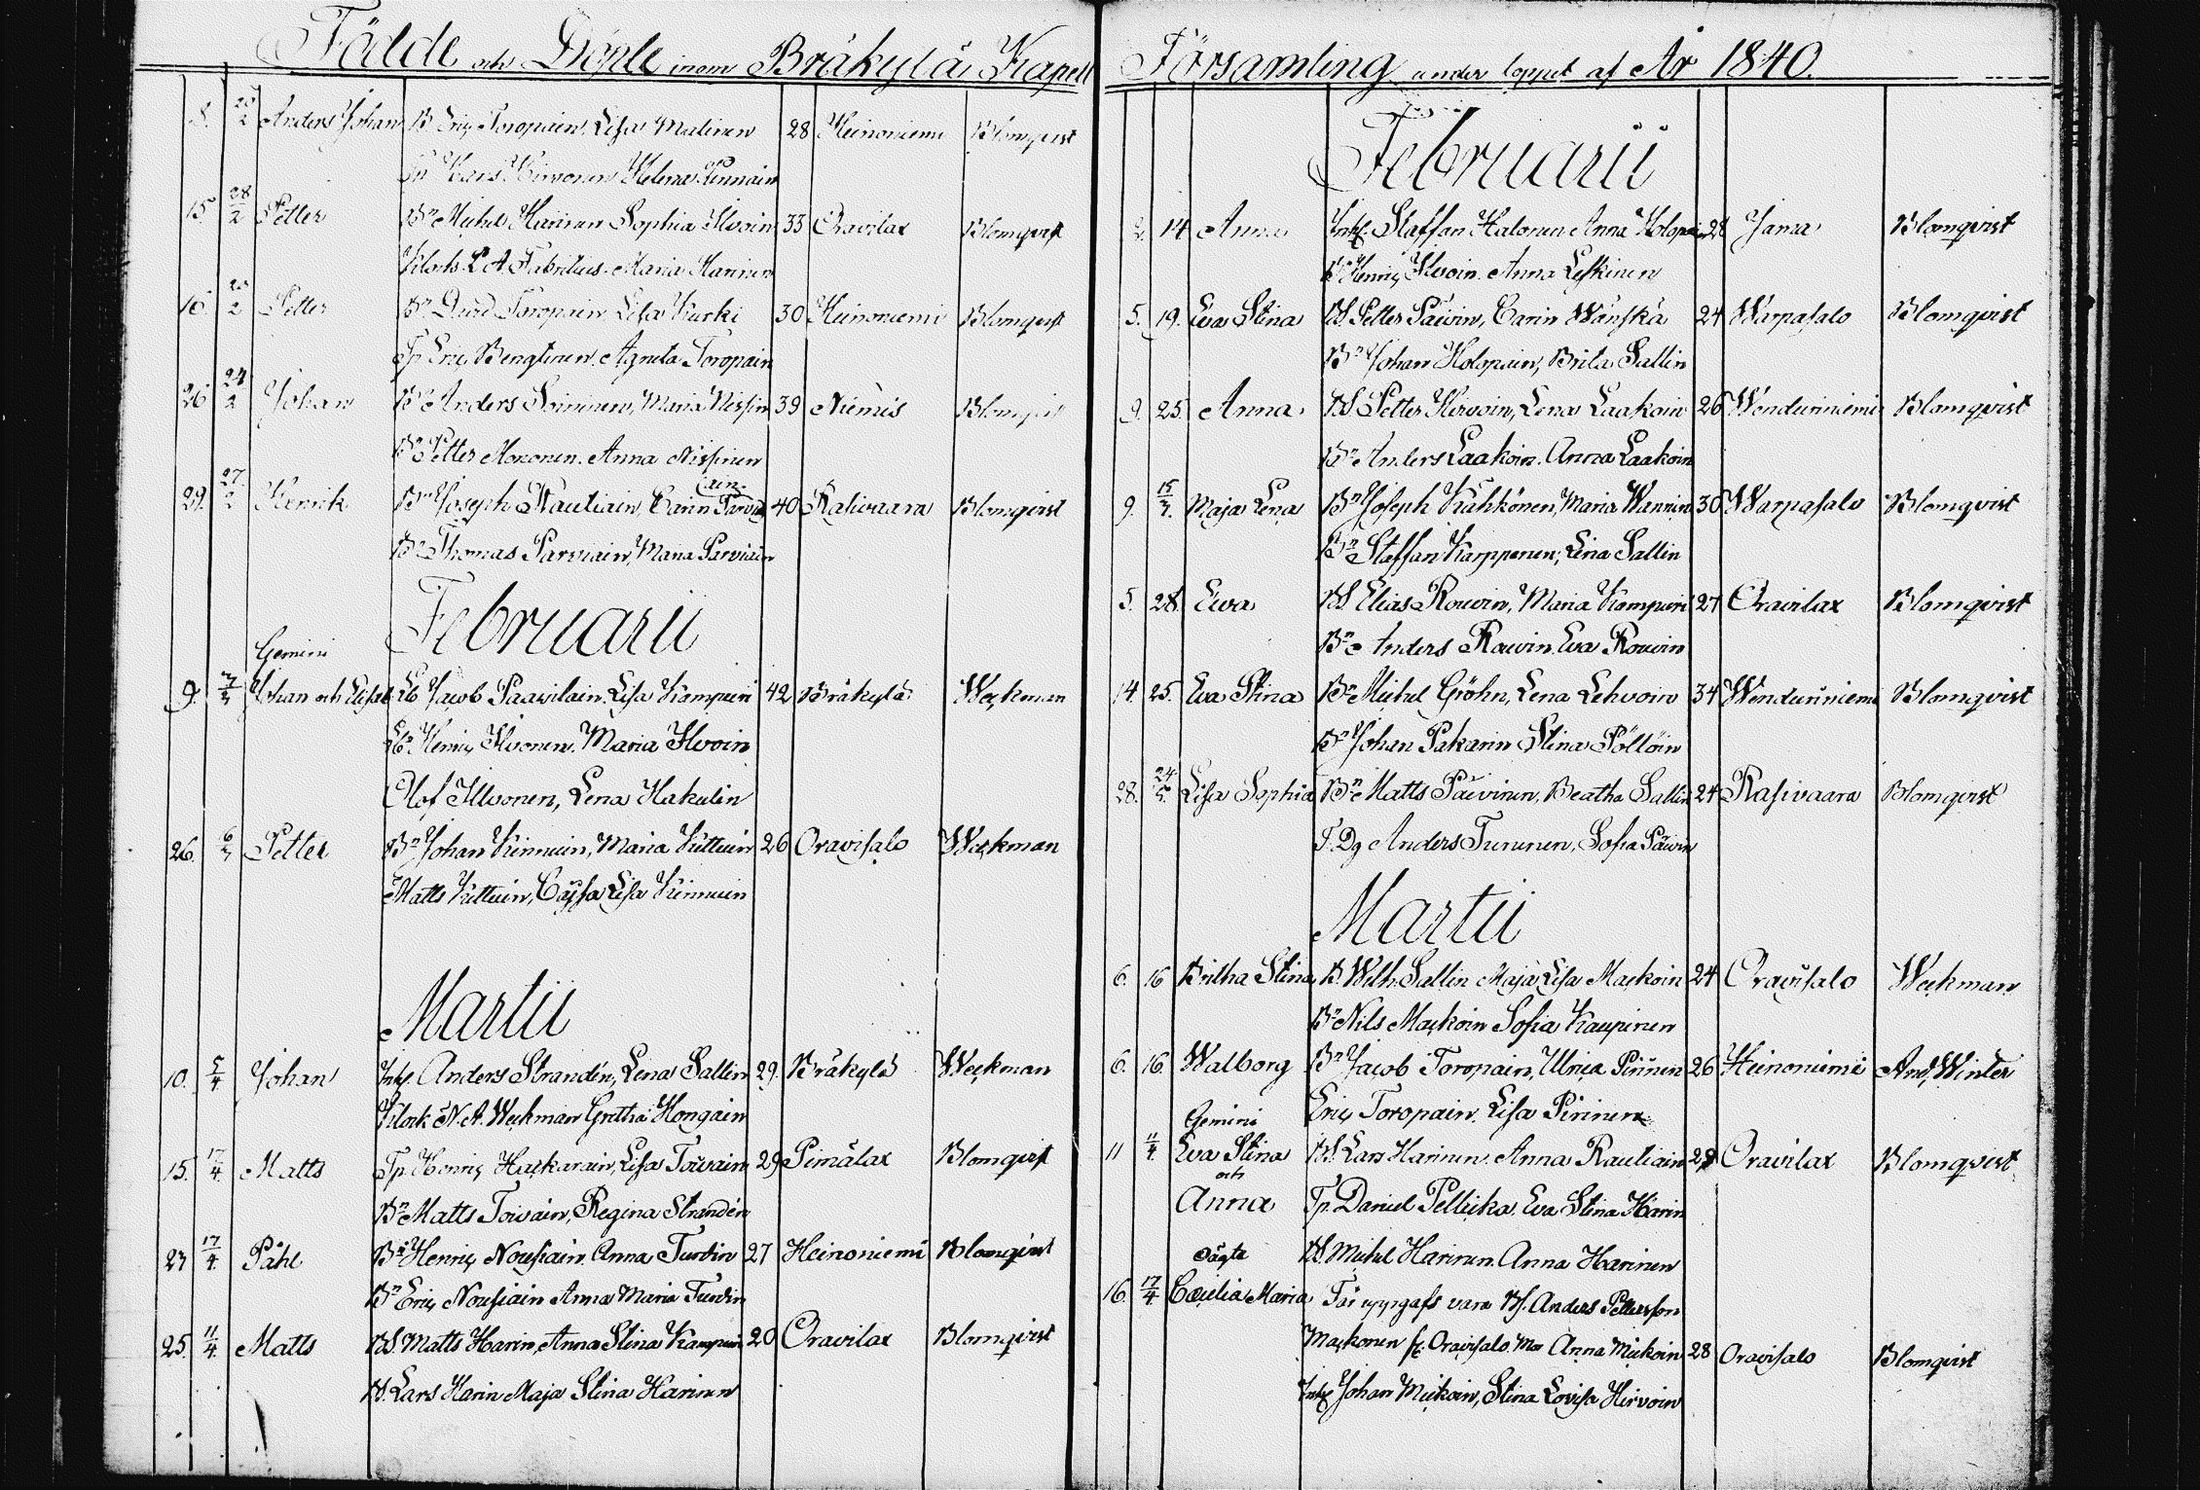 Födde och Döpte inom Bräkylä Kapell
8. 23/2 Anders Johan B. Eric Toropain, Lisa Malinen 28 Heinoniemi Blomqvist
Lars Hirvonen Helena Kinnain
15. 23/2 Petter Bn Michel Harinen Sophia Ilvoin 33 Oravilax Blomqvist
Klock. Fabritius. Maria Harinen
16. 23/2 Petter Bn Toropain Lisa Kurki 30 Heinoniemi Blomqvist
Tp Eric Bengtinen. Agneta Toropain
26 24/2 Johan Bn Anders Soininen, Maria Nissin 39 Niemis Blomqvist
Bn Petter Mononen. Anna Nissinen
29. 27/2 Henrik Bn Joseph Rautiain, Carin Parviain 40 Rasivaara Blomqvist
Bn Thomas Parviain, Maria Parviain
Februarii
Gemini
9. 7/3 Johan och Elisab. Jacob Paavilain. Lisa Kampuin 42 Bräkylä Weckman
Henric Ilvonen. Maria Ilvoin
Olof Illvonen, Lena Hakulin
26. 6/3 Petter Bn Johan Kinnuin, Maria Kuttuin 26 Oravisalo Weckman
Matts Kuttuin, Cajsa Lisa Kinnuin
Martii
10. 5/4 Johan Inh. Anders Strandén, Lena Sallin 29. Bräkylä Weckman
Klock N. A. Weckman Gretha Hongain
15. 17/4. Matts Tp Henric Hackarain, Lisa Toivain 29 Pimälax Blomqvist
Bn Matts Toivain, Regina Strandén
23 17/4. Påhl Bn Henric Nousiain. Anna Turdin 27 Heinoniemi Blomqvist
Bn Eric Nousiain Anna Maria Turdin
25. 11/4. Matts BS. Matts Harin, Anna Stina Kampuin 20 Oravilax Blomqvist
B. Lars Harin Maja Stina Harinen
Församling under loppet af År 1840.
Februarii
2. 14 Anna Inh. Staffan Halonen Anna Holopain 28 Jama Blomqvist
Bn Henric Ilvoin. Anna Leskinen
5. 19. Eva Stina BS Petter Päivin, Carin Wänskä 24 Warpasalo Blomqvist
Bn Johan Holopain, Brita Sallin
9. 25. Anna BS Petter Hirvoin, Lena Laakoin 26 Wendunniemi Blomqvist
Bn Anders Laakoin. Anna Laakoin
9. 15/3. Maja Lena Bn Joseph Kähkönen, Maria Wannin 30 Warpasalo Blomqvist
Bn Staffan Karppanen, Lena Sallin
5. 28. Ewa BS Elias Rouvin, Maria Kampuin 27 Oravilax Blomqvist
Bn Anders Rouvin. Eva Rouvin
14. 25. Eva Stina Bn Michel Gröhn, Lena Lehvoin 34 Wendunniemi Blomqvist
Bn Johan Pakarin Stina Pöllöin
28. 24/5. Lisa Sophia Bn Matts Päivinen, Beatha Sallin 24 Rasivaara Blomqvist
T. Dg Anders Turunen, Sofia Päivin
Martii
6. 16 Britha Stina B. Wilh. Sallin Maja Lisa Mackoin 24 Oravisalo Weckman
Bn Nils Mackoin Sofia Kaupinen
6. 16 Walborg Bn Jacob Toropain, Ulrica Pirinen 26 Heinoniemi And. Winter
Eric Toropain. Lisa Pirinen
Gemini
11 11/4. Eva Stina BS. Lars Harinen. Anna Rautiain 29 Oravilax Blomqvist
och
Anna Tp. Daniel Pellicka. Eva Stina Harin
B. Michel Harinen. Anna Harinen
oägta
16. 17/4. Cæcilia Maria Far uppgafs vara Bs. Anders Pettersson
Mackonen fr. Oravisalo. Mor Anna Mickoin 28 Oravisalo Blomqvist
Inh. Johan Mickoin, Stina Lovisa Hirvoin